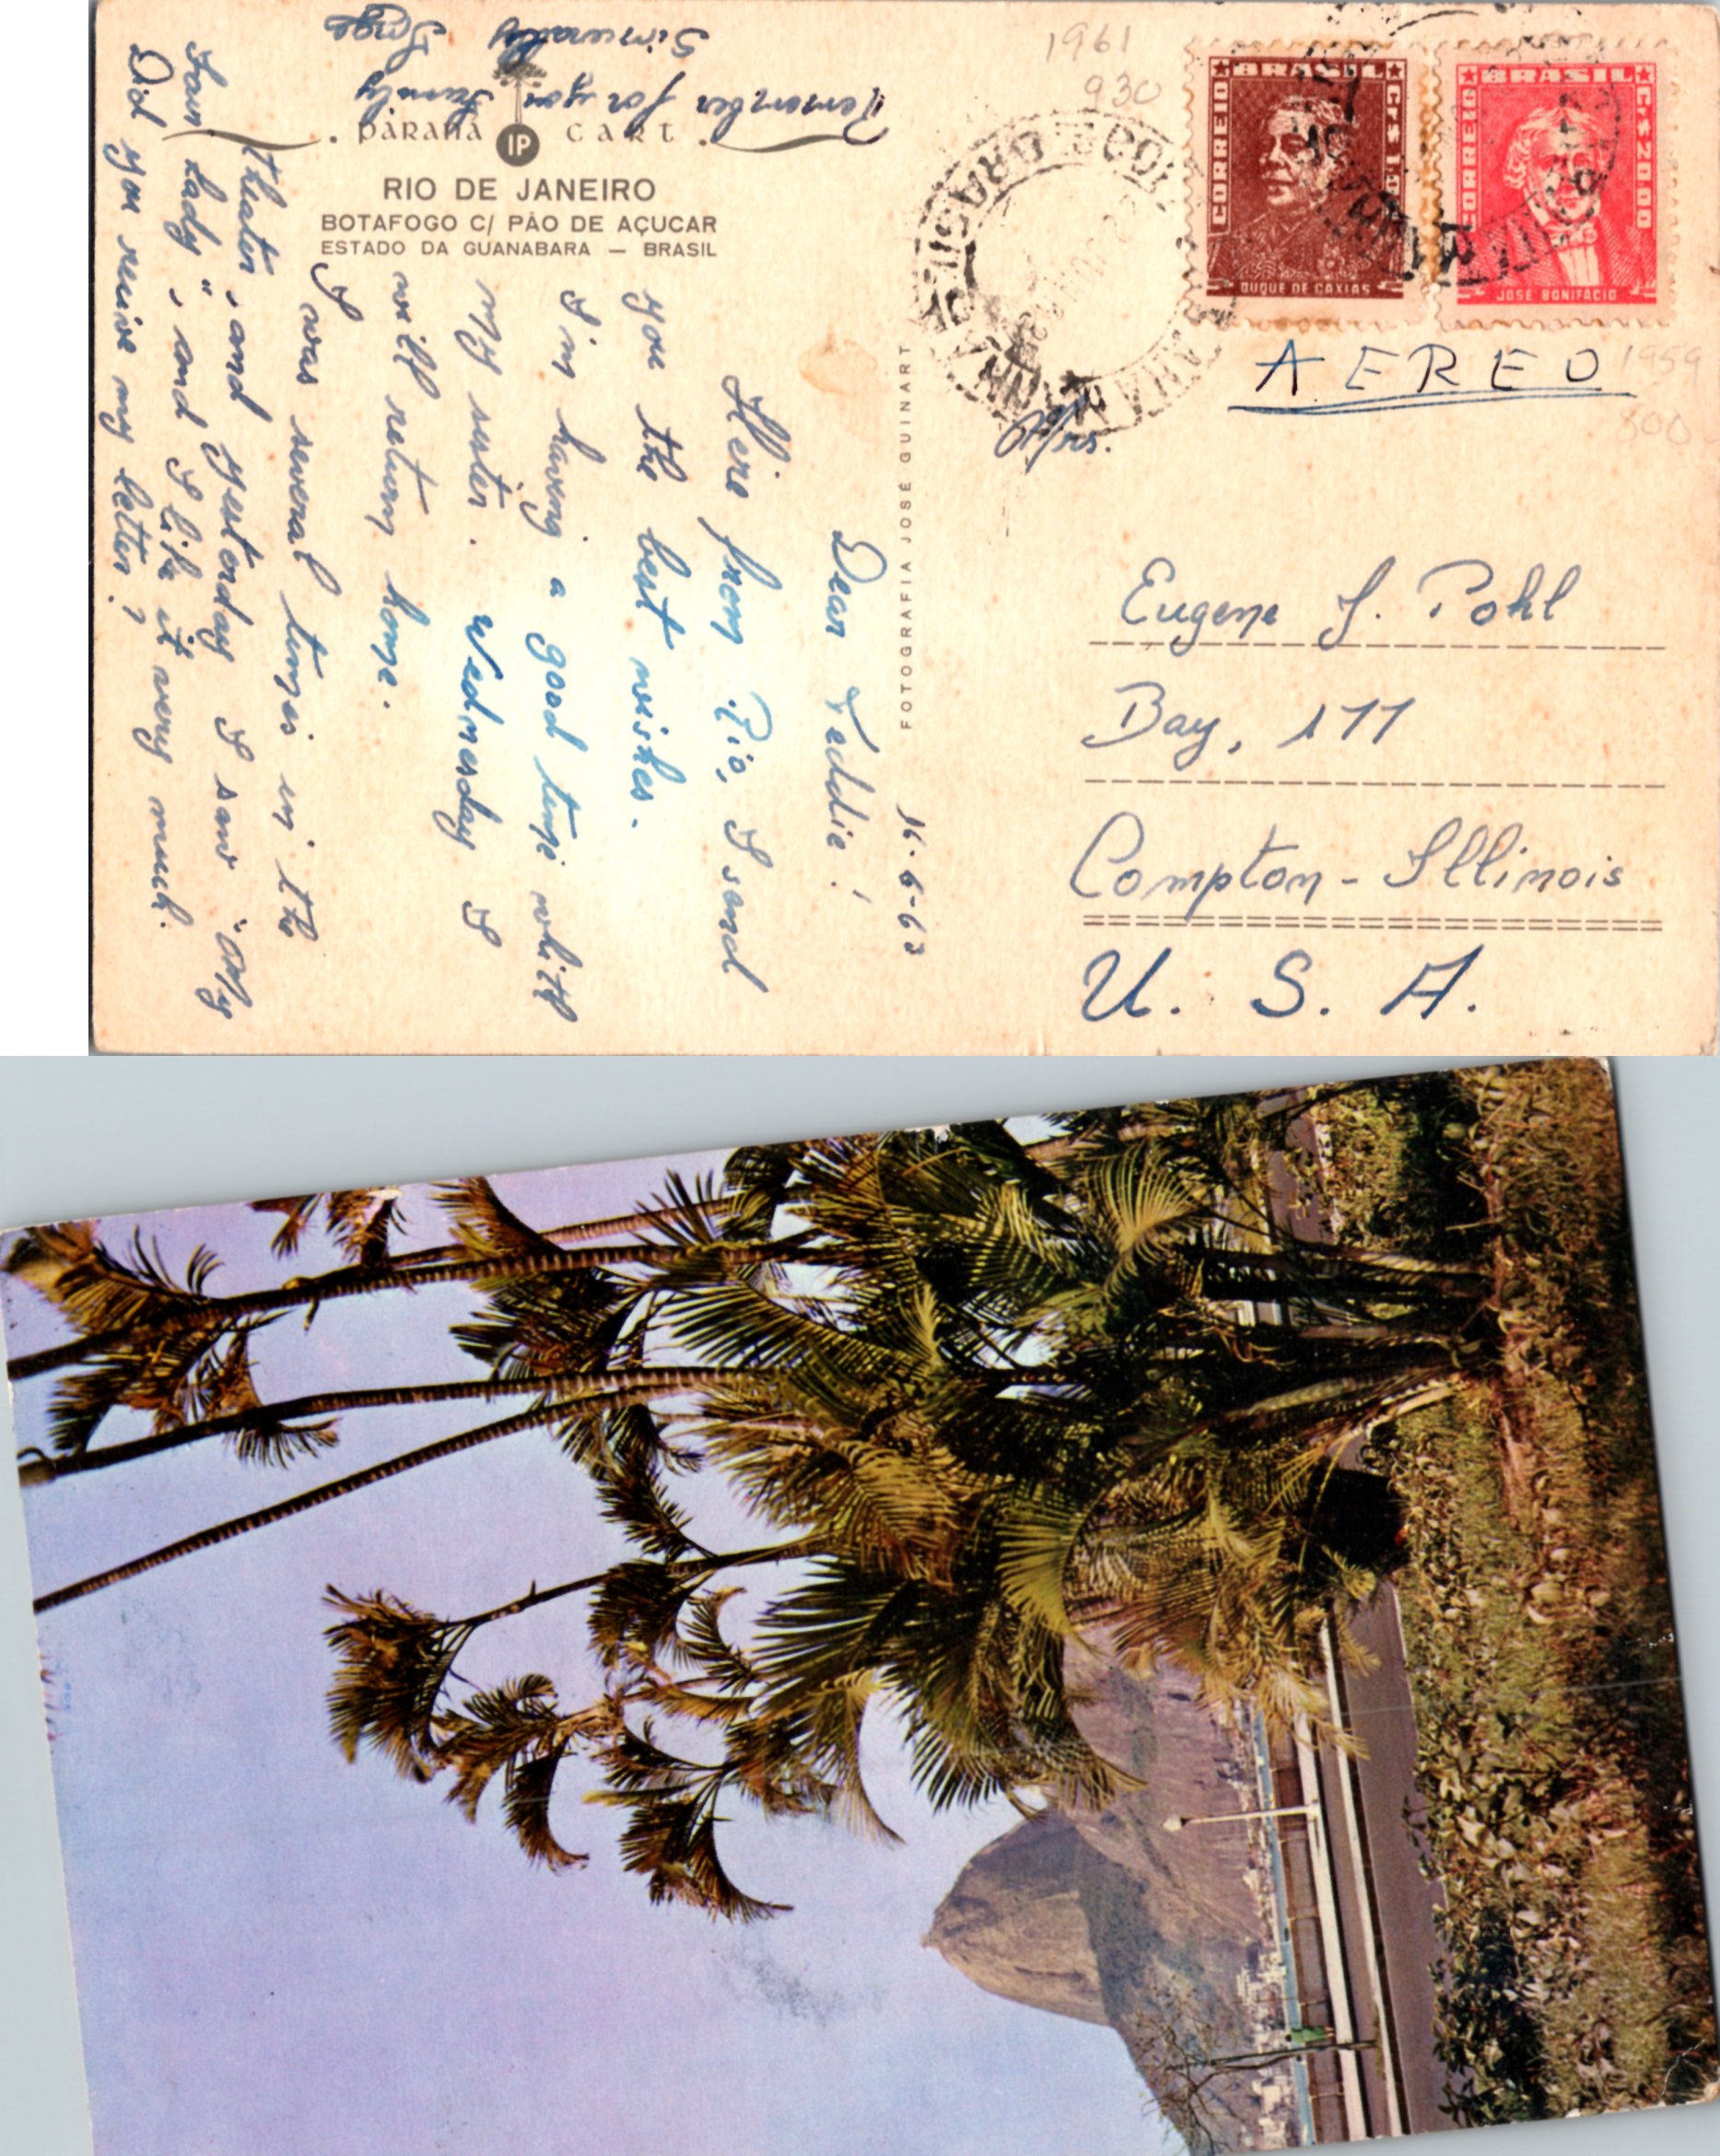 PARANÁ CART
IP
RIO DE JANEIRO
BOTAFOGO C/ PÃO DE AÇUCAR
ESTADO DA GUANABARA — BRASIL
FOTOGRAFIA JOSÉ GUINART
16-6-63
Dear Teddie!
Here from Rio, I send
you the best wishes.
I'm having a good time whith
my sister. Wednesday I
will return home.
I was several times in the
theater, and yesterday I saw "My
Fair Lady", and I like it very much.
Did you receive my letter?
Remember for you Family
Sincerely
1961
930
BRASIL
CORREIO
DUQUE DE CAXIAS
BRASIL
CORREIO
Cr$ 20.00
JOSÉ BONIFACIO
AEREO
1959
800
Mrs.
Eugene J. Pohl
Bay, 177
Compton - Illinois
U. S. A.